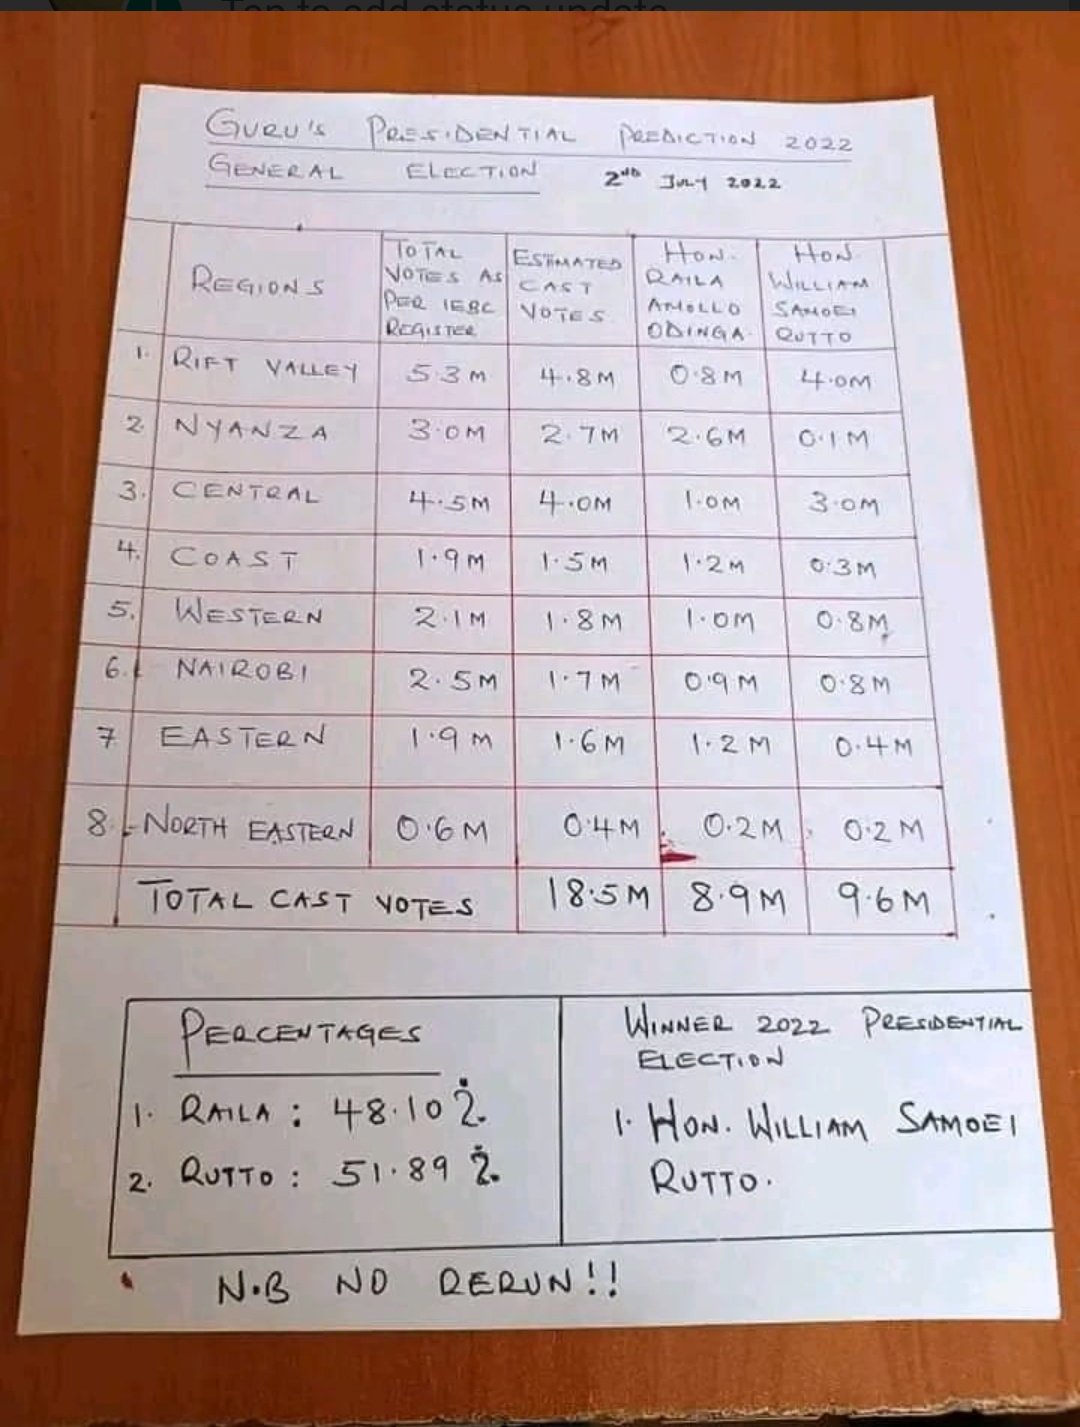 GURU'S PRESIDENTIAL PREDICTION 2022
GENERAL ELECTION 2ND JULY 2022
REGIONS
TOTAL
VOTES AS
PER IEBC
REGISTER
ESTIMATED
CAST
VOTES
HON.
RAILA
AMOLLO
ODINGA
HON.
WILLIAM
SAMOEI
RUTTO
1. RIFT VALLEY 5.3M 4.8M 0.8M 4.0M
2 NYANZA 3.0M 2.7M 2.6M 0.1M
3. CENTRAL 4.5M 4.0M 1.0M 3.0M
4. COAST 1.9M 1.5M 1.2M 0.3M
5. WESTERN 2.1M 1.8M 1.0M 0.8M
6. NAIROBI 2.5M 1.7M 0.9M 0.8M
7 EASTERN 1.9M 1.6M 1.2M 0.4M
8. NORTH EASTERN 0.6M 0.4M 0.2M 0.2M
TOTAL CAST VOTES 18.5M 8.9M 9.6M
PERCENTAGES
1. RAILA : 48.10%
2. RUTTO : 51.89%
WINNER 2022 PRESIDENTIAL
ELECTION
1. HON. WILLIAM SAMOEI
RUTTO.
N.B NO RERUN!!